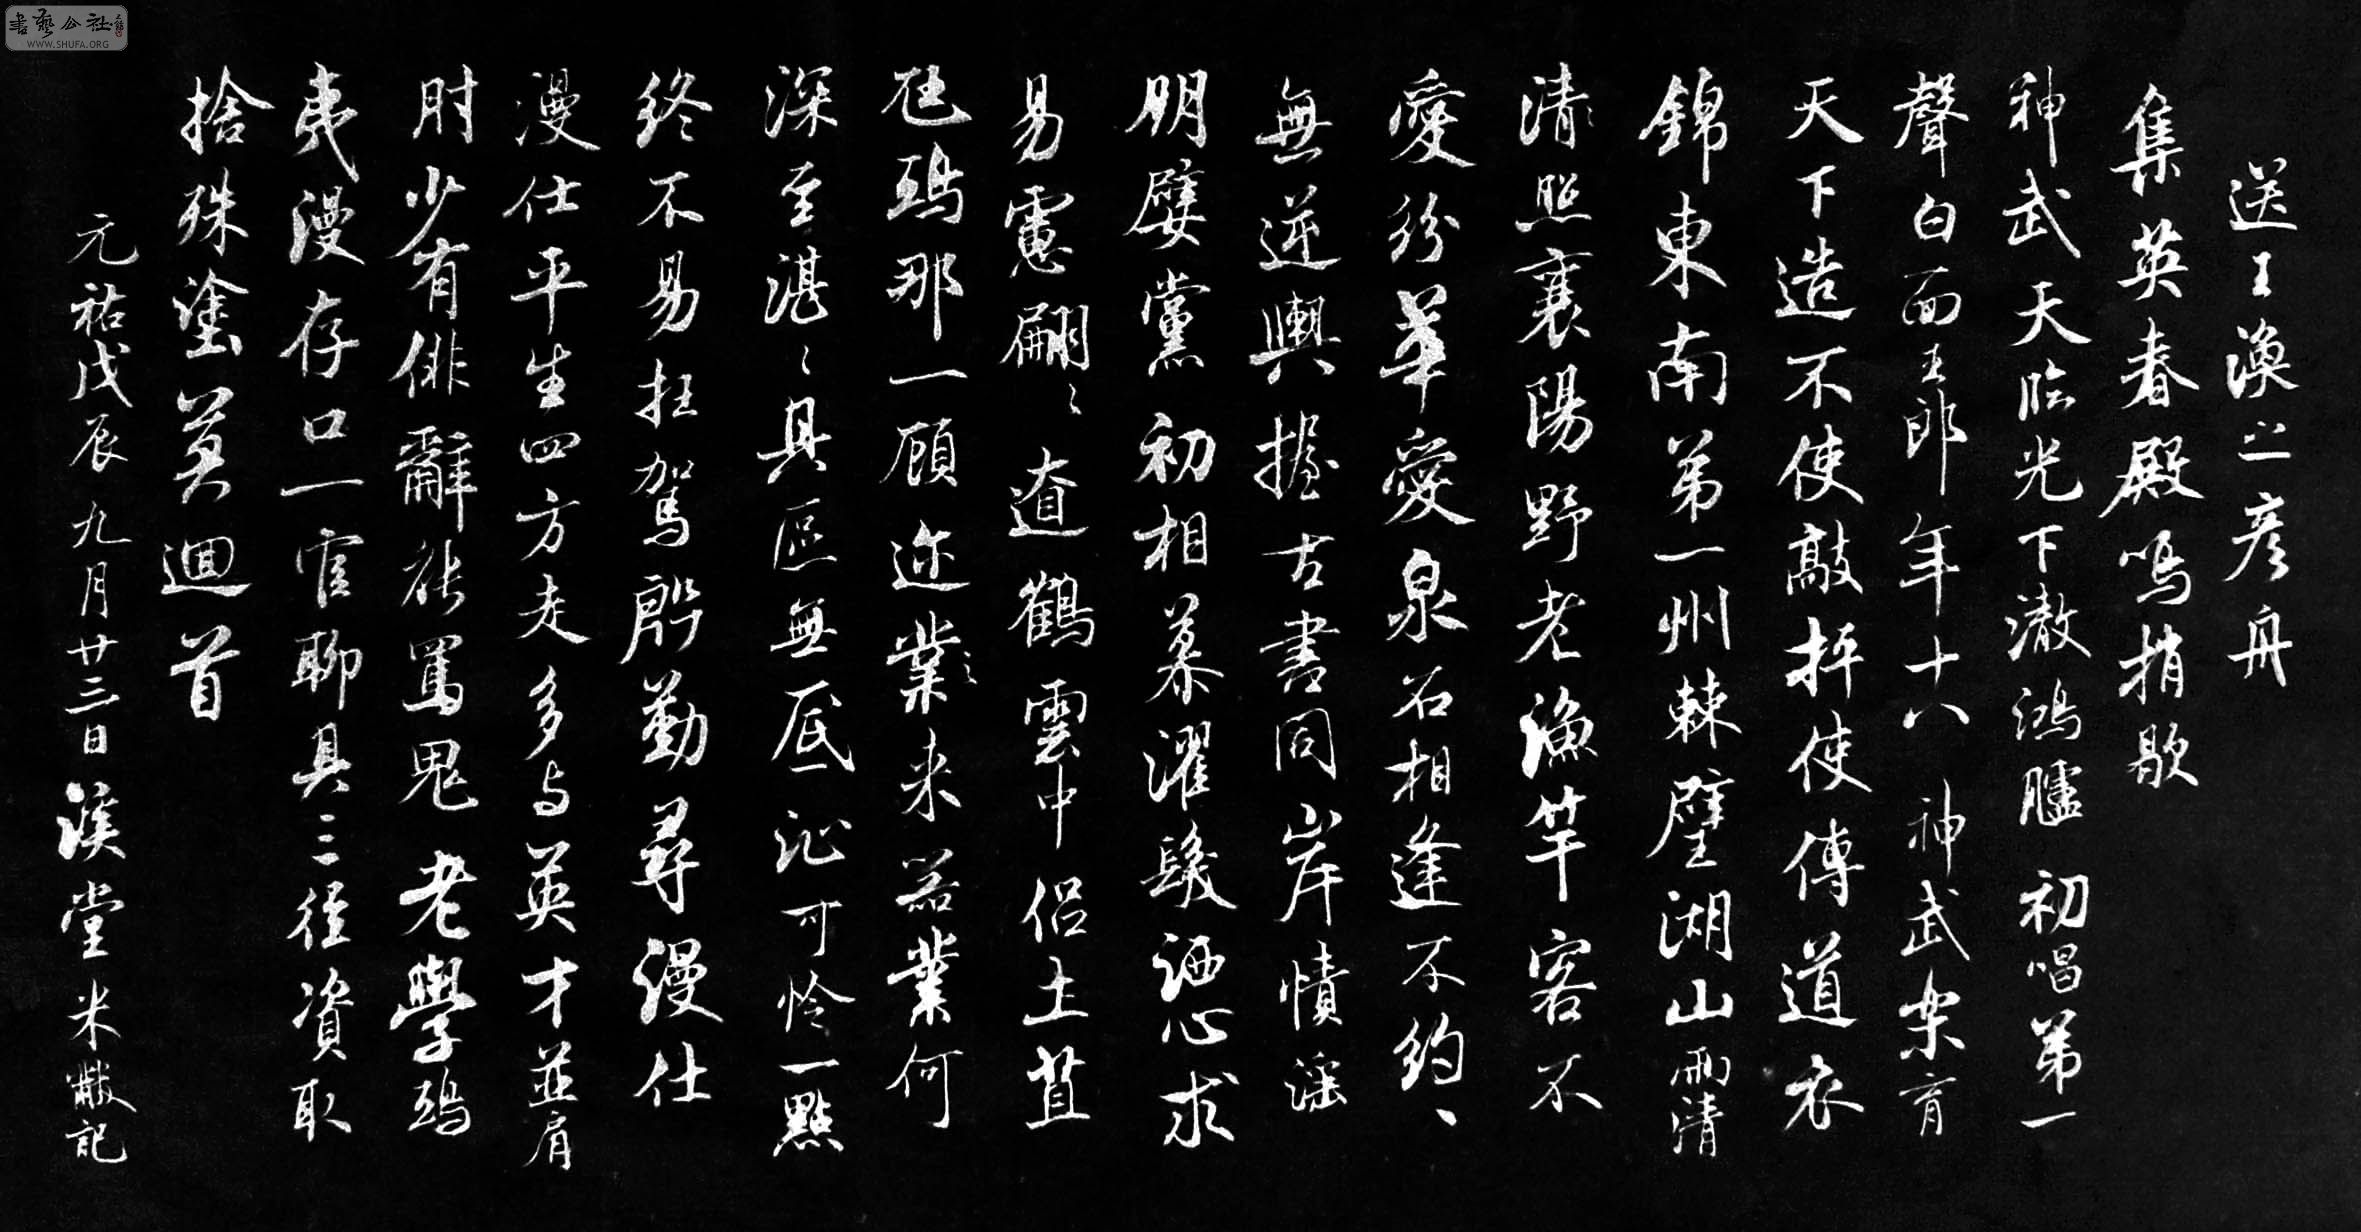 送王渙之彥舟
集英春殿鳴捎歇
神武天臨光下澈鴻臚初唱第一
聲白面王郎年十八神武樂育
天下造不使敲抨使傳道衣
錦東南第一州棘璧湖山兩清
清照襄陽野老漁竿客不
愛紛華愛泉石相逢不約約
無逆輿握古書同岸幘淫
朋嬖黨初相慕濯髮洒心求
易慮翩翩遼鶴雲中侶土苴
尪鵄那一顧邇業業來器業何
深至湛湛具區無底沚可怜一點
終不易枉駕殷勤尋漫仕
漫仕平生四方走多与英才並肩
肘少有俳辭能罵鬼老學鴟
夷漫存口一官聊具三徑資取
捨殊塗莫迴首
元祐戊辰九月廿三日溪堂米黻記
書藝公社
WWW.SHUFA.ORG